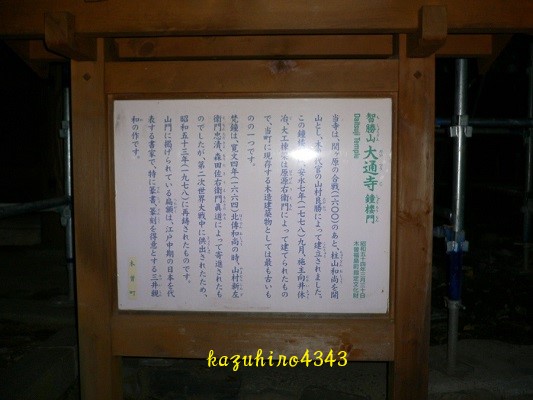 智勝山 大通寺 鐘楼門
Daitsuji Temple
昭和五十四年三月三十四
木曽福島町指定文化財
当寺は、関ヶ原の合戦(一六〇〇)のあと、桂山和尚を開
山とし、木曽代官の山村良勝によって建立されました。
この鐘楼門は、安永七年(一七七八)九月、施主向井休
治、大工棟梁は原源右衛門によって建てられたもの
で、当町に現存する木造建築物としては最も古いも
のの一つです。
梵鐘は、寛文四年(一六六四)北傳和尚の時、山村新左
衛門忠清、森田佐右衛門真道によって寄進されたも
のでしたが、第二次世界大戦中に供出されたため、
昭和五十三年(一九七八)に再鋳されたものです。
山門に掲げられている扁額は、江戸中期の日本を代
表する書家で、特に篆書、篆刻を得意とする三井親
和の作です。
木曽町
kazuhiro4343